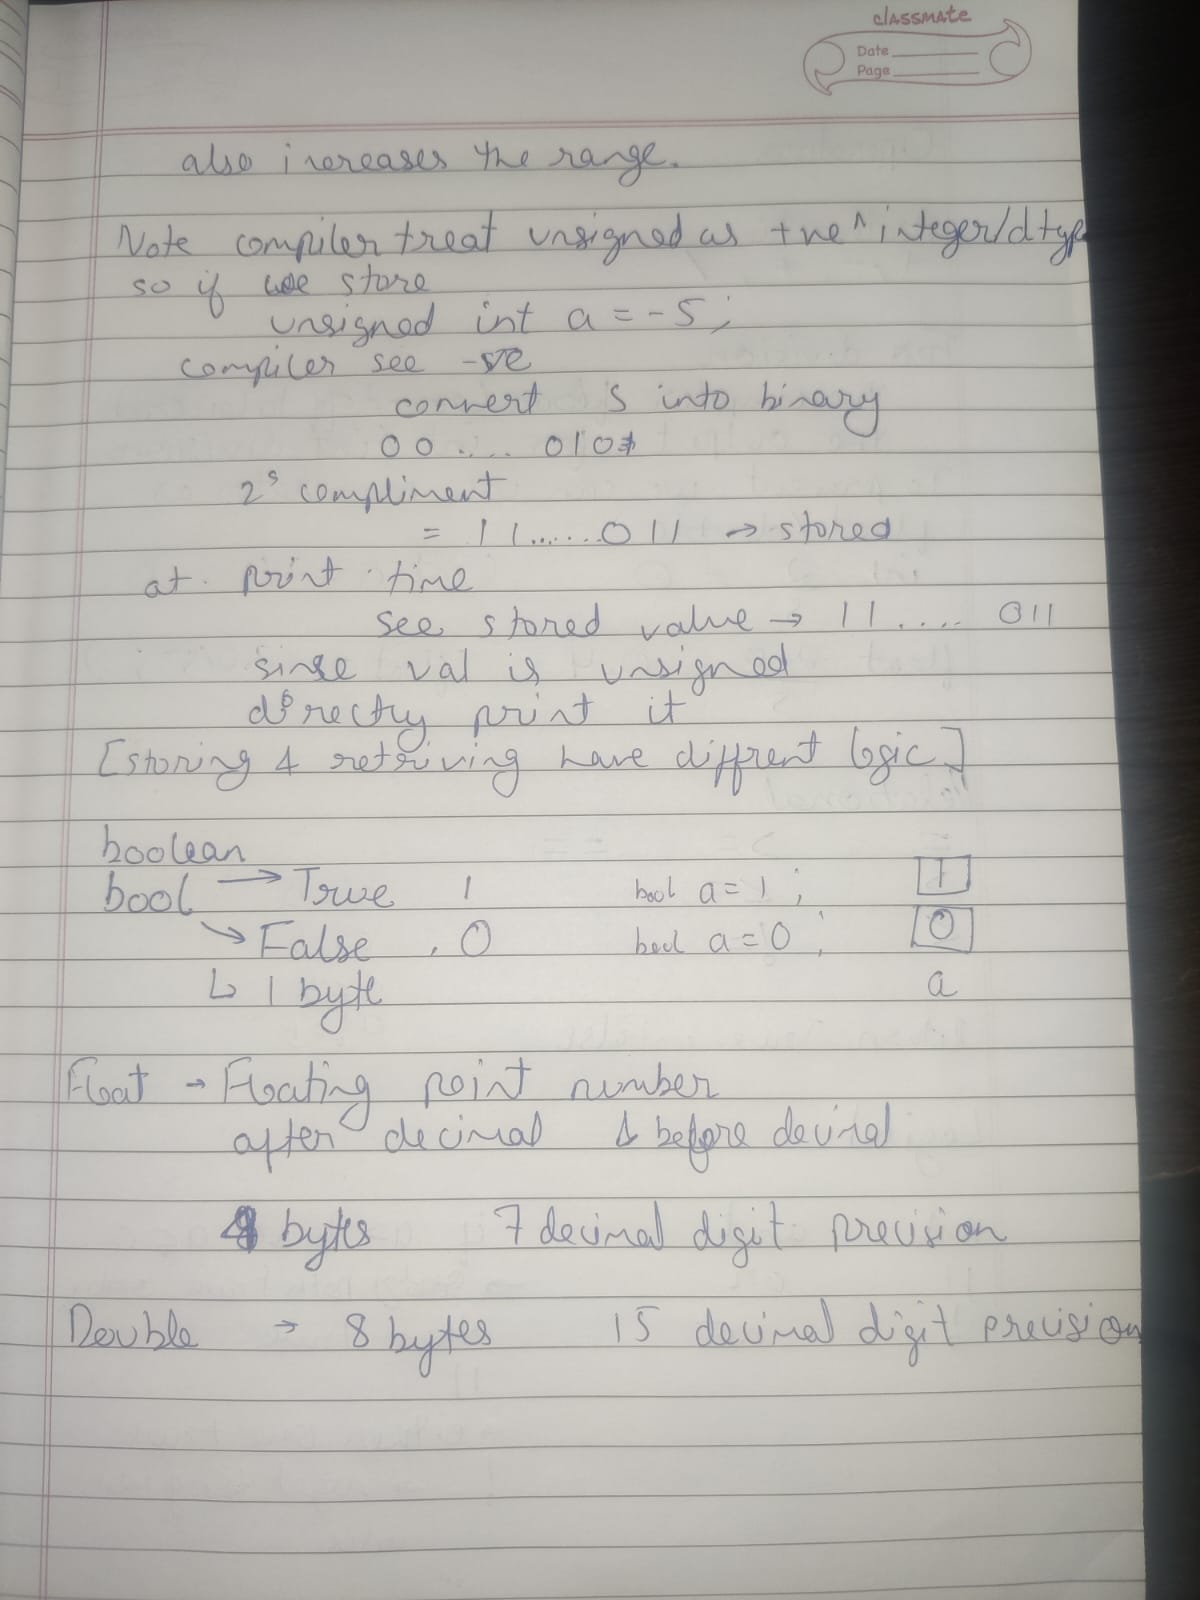 classmate
Date
Page
also increases the range.
Note compiler treat unsigned as +ve ^ integer/dtype
so if we store
unsigned int a = -5;
compiler see -ve
convert 5 into binary
00..... 0101
2s compliment
= 11.......011 → stored
at print time
see stored value → 11..... 011
sinse val is unsigned
directly print it
[storing & retriving have diffrent logic]
boolean
bool → True 1 bool a = 1; 1
↘ False . 0 bool a = 0; 0
↳ 1 byte a
Float → Floating point number
after decimal & before decimal
4 bytes 7 decimal digit precision
Double → 8 bytes 15 decimal digit precision